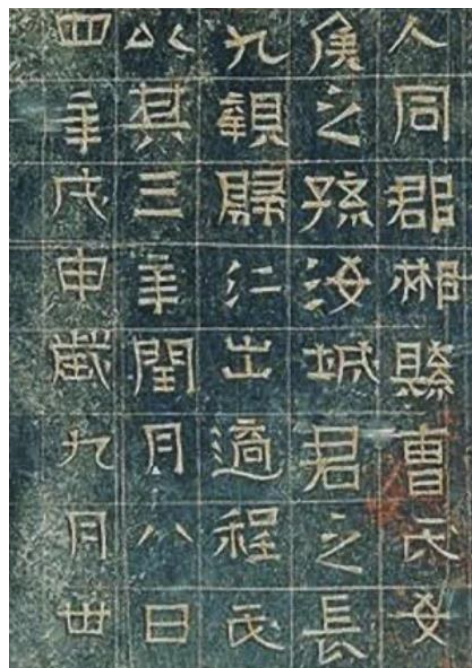 人同郡相縣曹氏女
侯之孫海城君之長
九觀歸仁出適程氏
以其三年閏月八日
四年戊申歲九月丗